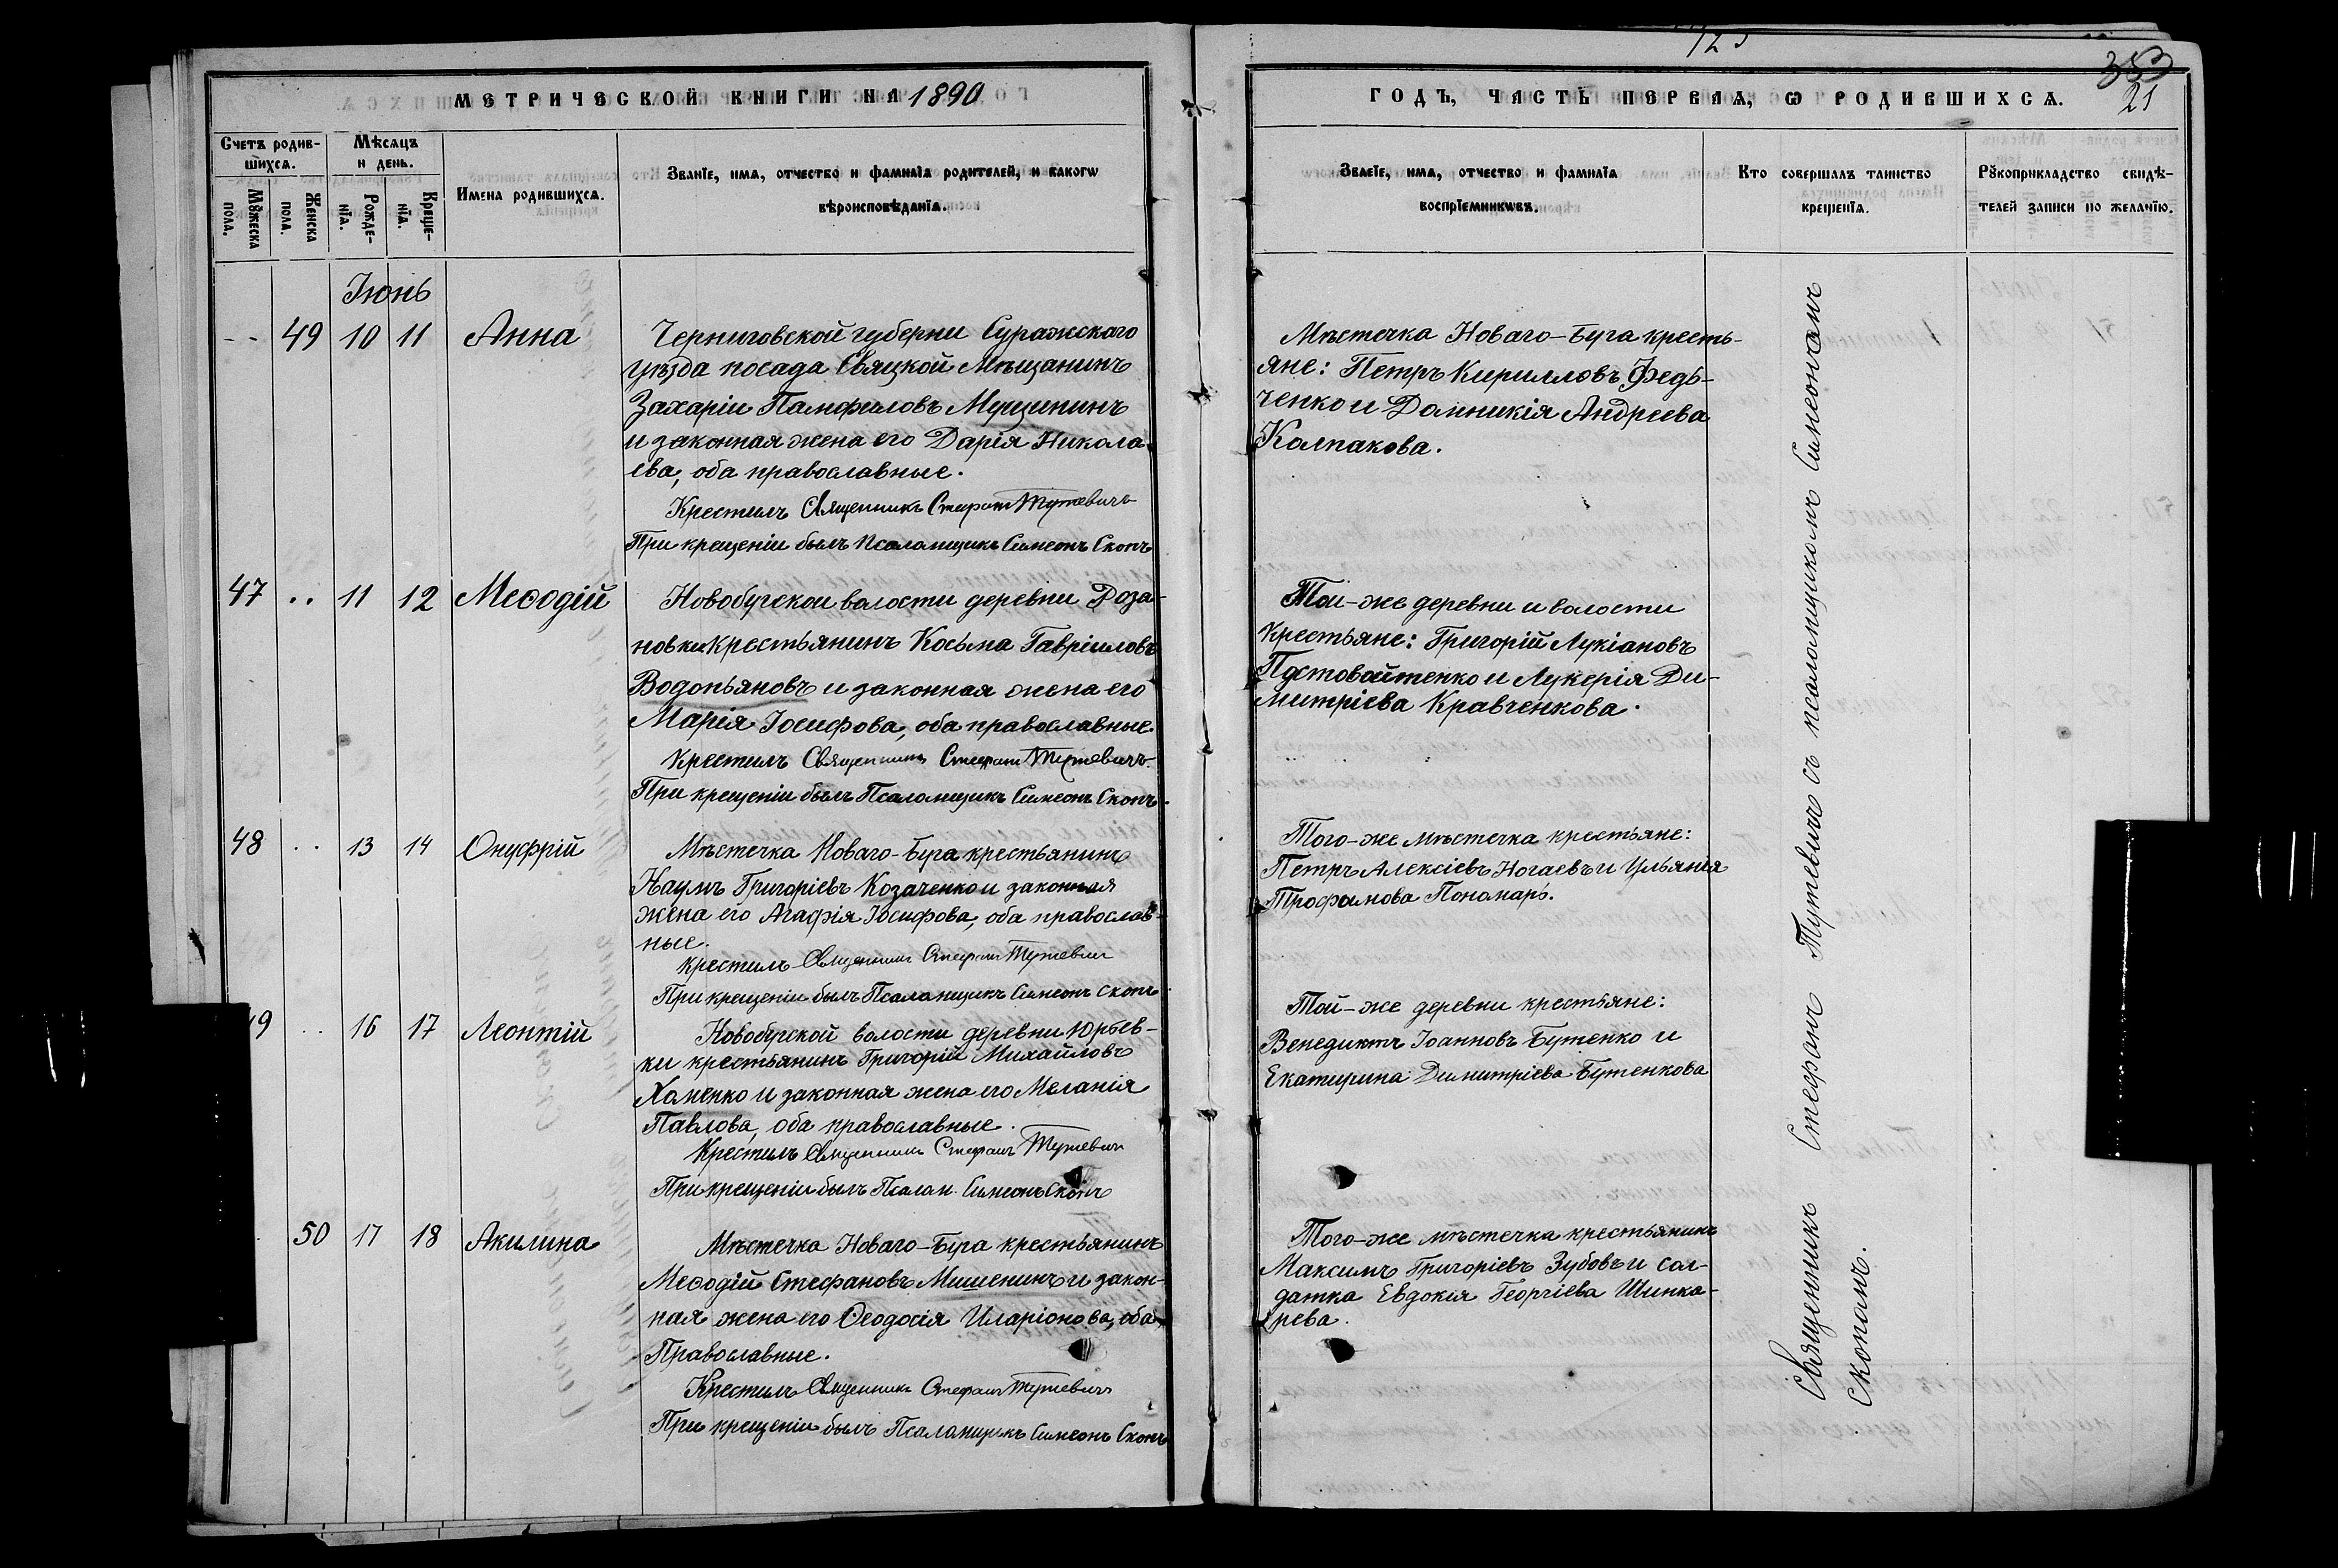 123
353
21
МЕТРИЧЕСКОЙ КНИГИ НА 1890
ГОДЪ, ЧАСТЬ ПЕРВАЯ, Ѡ РОДИВШИХСѦ.
Счетъ родив-
шихсѧ.
Мѣсѧцъ
и день.
Мꙋжеска
пола.
Женска
пола.
Рожде-
нїѧ.
Креще-
нїѧ.
Имена родившихсѧ.
Званїе, имѧ, отчество и фамилїѧ родителей, и какогѡ
вѣроисповѣданїѧ.
Званїе, имѧ, отчество и фамилїѧ
воспрїемникѡвъ.
Кто совершалъ таинство
крещенїѧ.
Рꙋкоприкладство свидѣ-
телей записи по желанїю.
Іюнь
-- 49 10 11 Анна
Черниговской губерніи Суражскаго
уѣзда посада Святской Мѣщанинъ
Захарій Памфиловъ Мущининъ
и законная жена его Дарія Никола-
ева, оба православные.
Крестилъ Священникъ Стефанъ Тутевичъ
При крещеніи былъ Псаломщикъ Симеонъ Скопъ
Мѣстечка Новаго-Буга кресть-
яне: Петръ Кирилловъ Федь-
ченко и Домникія Андреева
Колпакова.
47 .. 11 12 Меѳодій
Новобугской волости деревни Доза-
новки крестьянинъ Косьма Гавріиловъ
Водопьяновъ и законная жена его
Марія Іосифова, оба православные.
Крестилъ Священникъ Стефанъ Тутевичъ
При крещеніи былъ Псаломщикъ Симеонъ Скопъ.
Той-же деревни и волости
Крестьяне: Григорій Лукіановъ
Постовойтенко и Лукерія Ди-
митріева Кравченкова.
48 .. 13 14 Онуфрій
Мѣстечка Новаго-Буга крестьянинъ
Наумъ Григоріевъ Козаченко и законная
жена его Агафія Іосифова, оба православ-
ные.
Крестилъ Священникъ Стефанъ Тутевичъ
При крещеніи былъ Псаломщикъ Симеонъ Скопъ
Того-же мѣстечка крестьяне:
Петръ Алексіевъ Ногаевъ и Ульянія
Трофимова Пономарь.
9 .. 16 17 Леонтій
Новобугской волости деревни Юрьев-
ки крестьянинъ Григорій Михайловъ
Хоменко и законная жена его Меланія
Павлова, оба православные.
Крестилъ Священникъ Стефанъ Тутевичъ
При крещеніи былъ Псалом. Симеонъ Скопъ
Той-же деревни крестьяне:
Венедиктъ Іоанновъ Бутенко и
Екатирина Димитріева Бутенкова
50 17 18 Акилина
Мѣстечка Новаго-Буга крестьянинъ
Меѳодій Стефановъ Мишенинъ и закон-
ная жена его Ѳеодосія Иларіонова, оба
Православные.
Крестилъ Священникъ Стефанъ Тутевичъ
При крещеніи былъ Псаломщикъ Симеонъ Скопъ
Того-же мѣстечка крестьянинъ
Максимъ Григоріевъ Зубовъ и сол-
датка Евдокія Георгіева Шинка-
рева.
Священникъ Стефанъ Тутевичъ съ псаломщикомъ Симеономъ
Скопомъ.